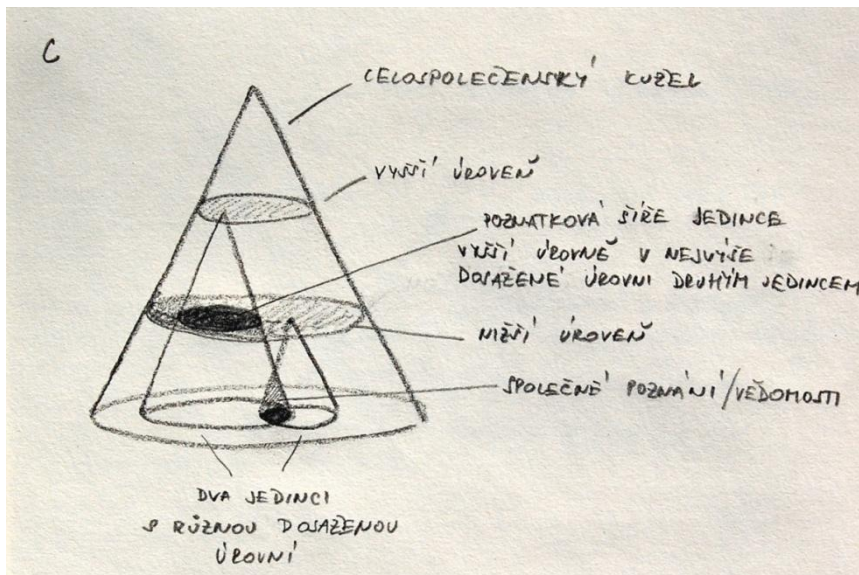 C
CELOSPOLEČENSKÝ KUŽEL
VYŠŠÍ ÚROVEŇ
POZNATKOVÁ ŠÍŘE JEDINCE
VYŠŠÍ ÚROVNĚ V NEJVÝŠE
DOSAŽENÉ ÚROVNI DRUHÝM JEDINCEM
NIŽŠÍ ÚROVEŇ
SPOLEČNÉ POZNÁNÍ/VĚDOMOSTI
DVA JEDINCI
S RŮZNOU DOSAŽENOU
ÚROVNÍ